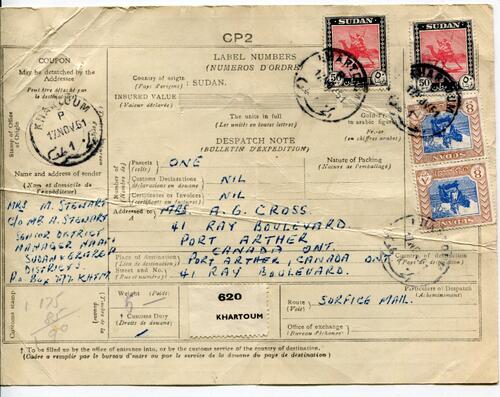 CP2
COUPON
May be detached by the Addressee
Peut être détaché par le destinataire
LABEL NUMBERS
(NUMEROS D'ORDRE)
Country of origin : SUDAN.
(Pays d'origine)
INSURED VALUE
(Valeur déclarée)
SUDAN
SUDAN
50
50
8
8
SUDAN
SUDAN
Stamp of Office of Origin
KHARTOUM
P
17NOV.51
The units in full
(Les unités en toutes lettres)
Gold-Francs in arabic figures
(en chiffres arabes)
DESPATCH NOTE
(BULLETIN D'EXPEDITION)
Name and address of sender
(Nom et domicile de l'expéditeur)
Number of
Parcels ONE
(colis)
Customs Declarations NIL
(déclarations en douane)
Certificates or Invoices NIL
(certificats ou factures)
Nature of Packing
(Nature de l'emballage)
Addressed to MRS. A. G. CROSS.
41 RAY BOULEVARD.
PORT ARTHER
CANADA ONT.
MRS M. STEWART
C/O MR A. STEWART
SENIOR DISTRICT
MANAGER
SUDAN
DISTRICTS.
P.O. BOX
Place of destination PORT ARTHER, CANADA ONT
(Lieu de destination)
Street and No. 41 RAY BOULEVARD.
(Rue et numéro)
Country of destination
(Pays de destination)
Customs stamp
(Timbre de la douane)
Weight (Poids)
† Customs Duty
(Droits de douane)
620
KHARTOUM
Particulars of Despatch
(Acheminement)
Route : SURFICE MAIL.
(Voie)
Office of exchange
(Bureau d'échange)
† To be filled up by the office of entrance into, or by the customs service of the country of destination.
(Cadre a remplir par le bureau d'entre ou par le service de la douane du pays de destination)